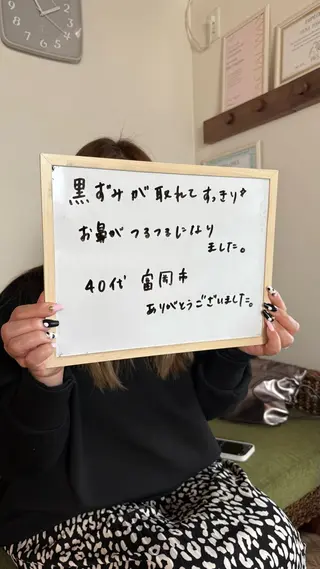 黒ずみが取れてすっきり♪
お鼻がつるつるになり
ました。
40代 富岡市
ありがとうございました。